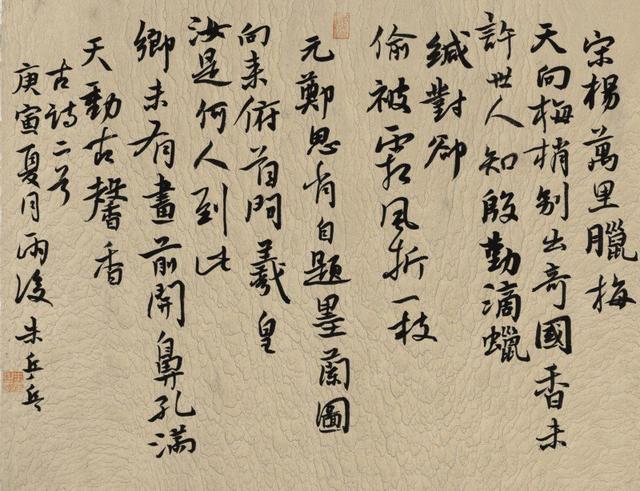 宋楊萬里臘梅
天向梅梢別出奇國香未
許世人知殷勤滴蠟
緘封卻
偷被霜風折一枝
元鄭思肖自題墨蘭圖
向来俯首問羲皇
汝是何人到此
鄉未有畫前開鼻孔滿
天動古馨香
古詩二首
庚寅夏月雨後朱兵兵